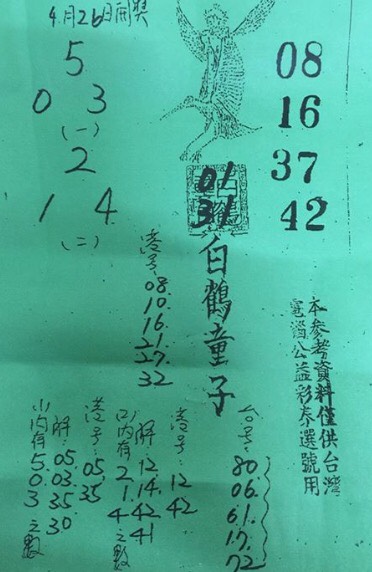 4月26日開獎
5
0 3
(一)
2
1 4
(二)
08
16
37
42
01
31
白鶴童子
本參考資料僅供台灣
電腦公益彩券選號用
港号:
08.
10.
16.
21.
27.
32
台号:
80.
06.
61.
17.
72
港号:
12
42
解:
12.
14.
42
41
(二)內有
2
1.
4之數
港号:
05
35
解:
05.
03.
35.
30
(一)內有
5.
0.
3之數